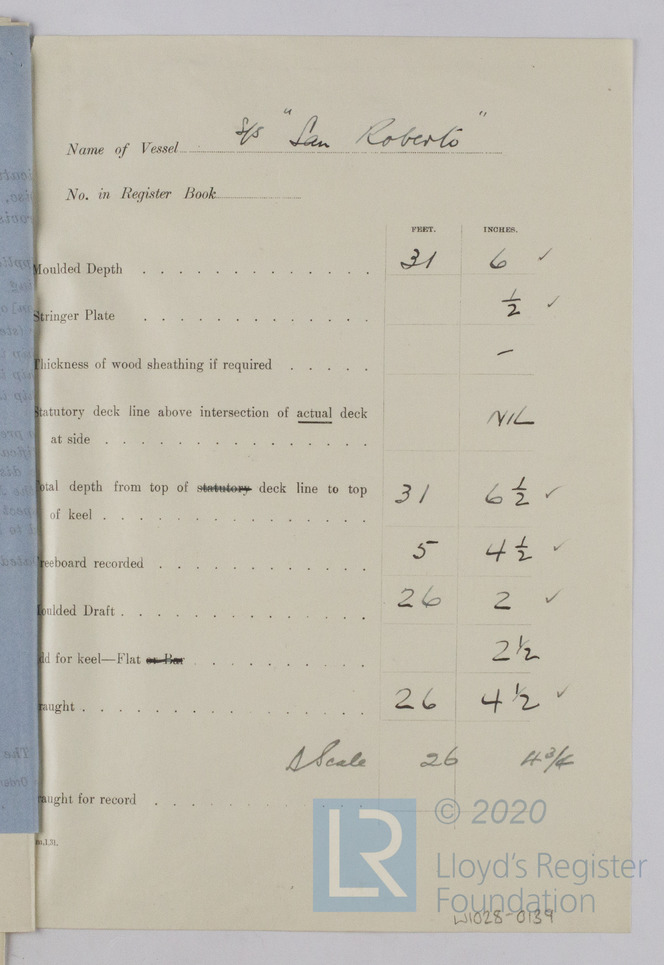 Name of Vessel S/S "San Roberto"
No. in Register Book
FEET. INCHES.
Moulded Depth 31 6 ✓
Stringer Plate ½ ✓
Thickness of wood sheathing if required –
Statutory deck line above intersection of actual deck
at side NIL
otal depth from top of statutory deck line to top
of keel 31 6 ½ ✓
reeboard recorded 5 4 ½ ✓
oulded Draft 26 2 ✓
dd for keel—Flat or Bar 2 ½
raught 26 4 ½ ✓
Scale 26 4 ¾
raught for record
© 2020
LR
Lloyd's Register
Foundation
W1028-0139